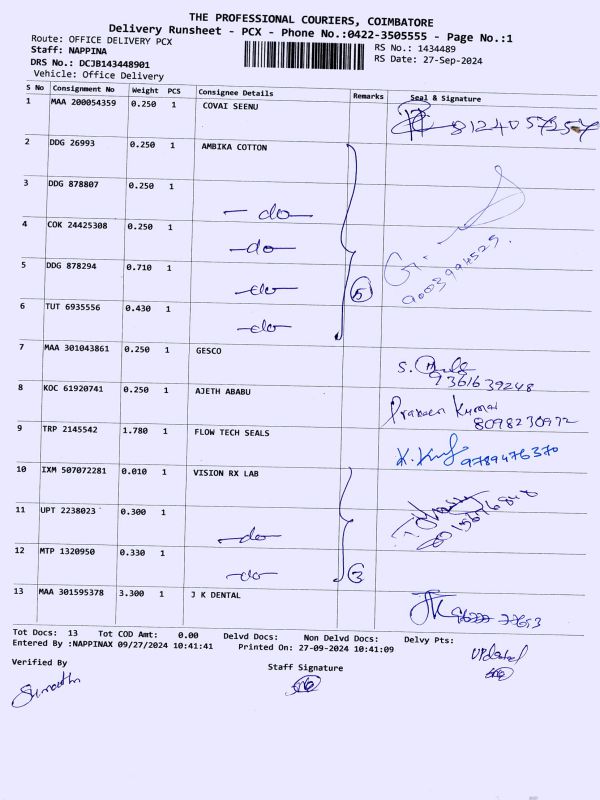 THE PROFESSIONAL COURIERS, COIMBATORE
Delivery Runsheet - PCX - Phone No.:0422-3505555 - Page No.:1
Route: OFFICE DELIVERY PCX RS No.: 1434489
Staff: NAPPINA RS Date: 27-Sep-2024
DRS No.: DCJB143448901
Vehicle: Office Delivery
S No Consignment No Weight PCS Consignee Details Remarks Seal & Signature
1 MAA 200054359 0.250 1 COVAI SEENU 8124057257
2 DDG 26993 0.250 1 AMBIKA COTTON
3 DDG 878807 0.250 1 - do -
4 COK 24425308 0.250 1 - do -
5 DDG 878294 0.710 1 - do - 5 9003994529.
6 TUT 6935556 0.430 1 - do -
7 MAA 301043861 0.250 1 GESCO S. 9361639248
8 KOC 61920741 0.250 1 AJETH ABABU Praveen Kumar 8098230972
9 TRP 2145542 1.780 1 FLOW TECH SEALS 9789476370
10 IXM 507072281 0.010 1 VISION RX LAB
11 UPT 2238023 0.300 1 - do -
12 MTP 1320950 0.330 1 - do - 3
13 MAA 301595378 3.300 1 J K DENTAL JK
Tot Docs: 13 Tot COD Amt: 0.00 Delvd Docs: Non Delvd Docs: Delvy Pts:
Entered By :NAPPINAX 09/27/2024 10:41:41 Printed On: 27-09-2024 10:41:09 Updated
Verified By Staff Signature
Sumathi